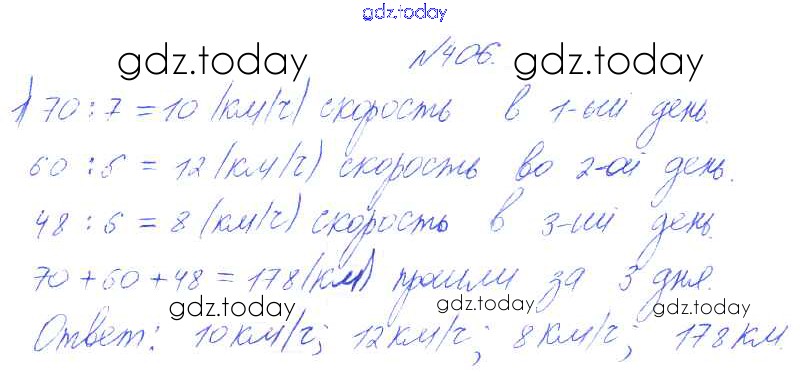 gdz.today
№406.
gdz.today gdz.today
1) 70 : 7 = 10 (км/ч) скорость в 1-ый день.
60 : 5 = 12 (км/ч) скорость во 2-ой день.
48 : 6 = 8 (км/ч) скорость в 3-ий день.
70 + 60 + 48 = 178 (км) прошли за 3 дня.
gdz.today gdz.today gdz.today
Ответ: 10 км/ч; 12 км/ч; 8 км/ч; 178 км.